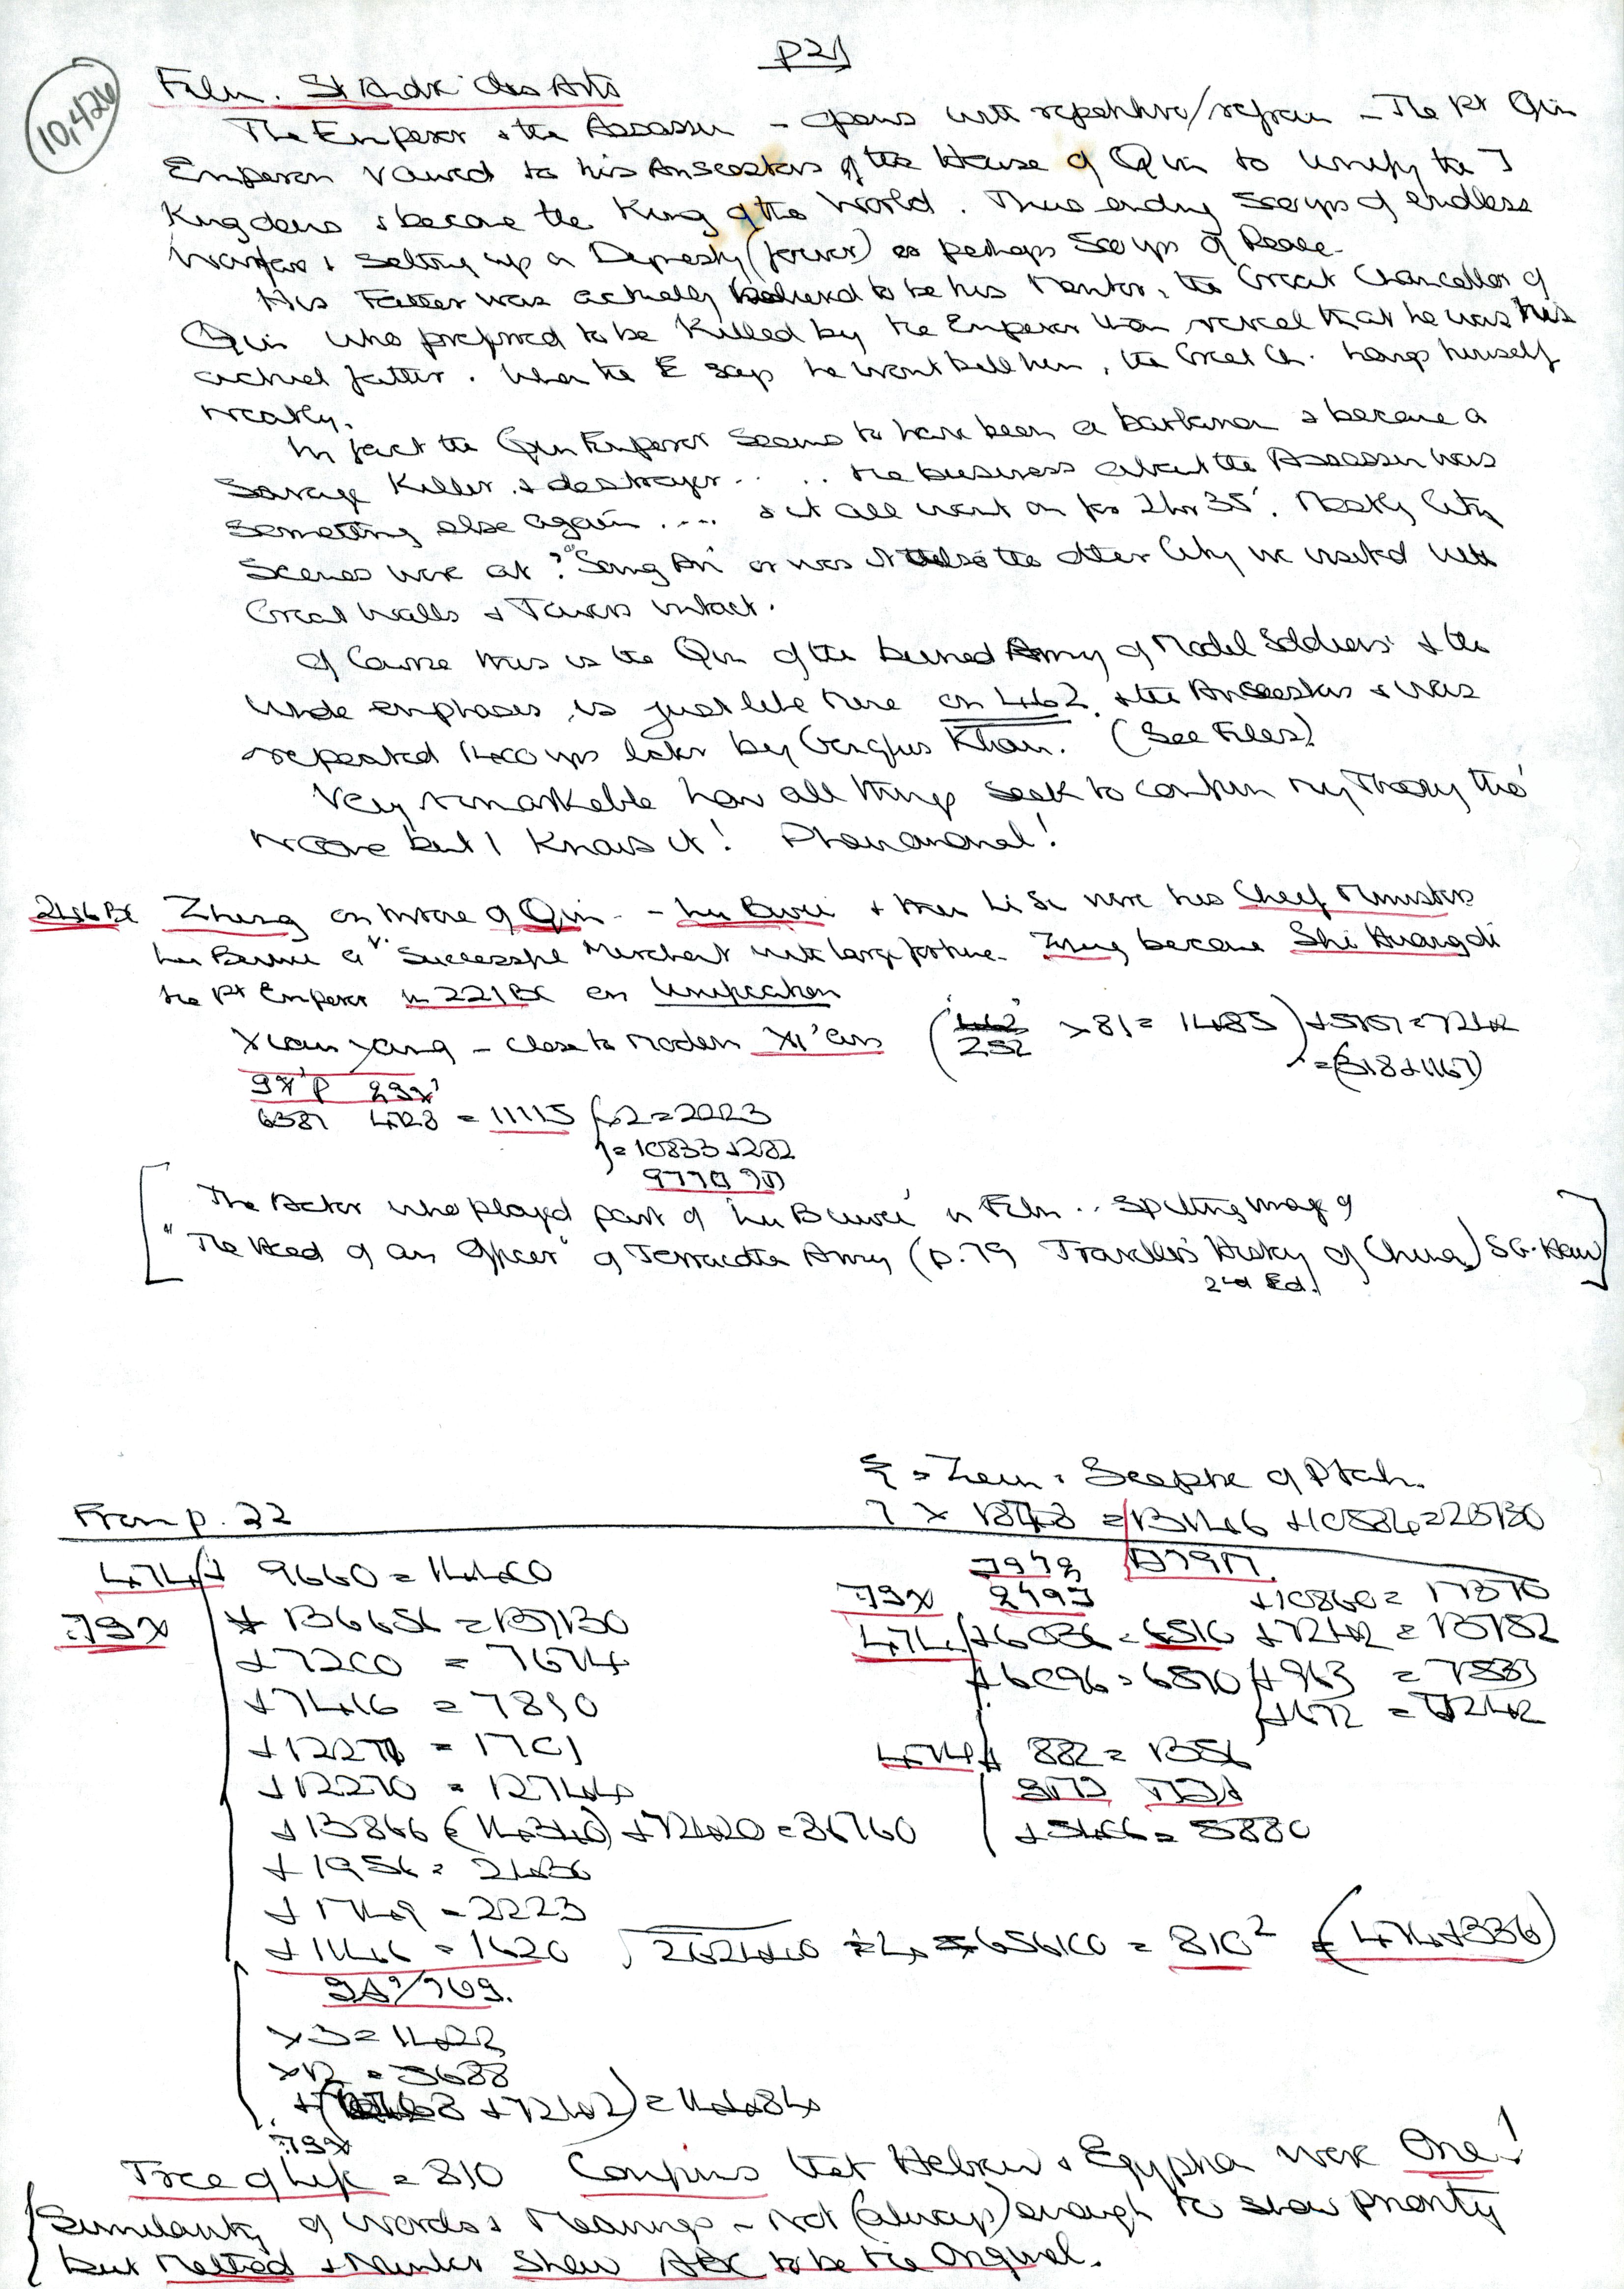 p21
10,426
Film. St Andre des Arts
The Emperor & the Assassin - opens with repetitive/refrain - The 1st Qin
Emperor vowed to his Anscestors of the House of Qin to unify the 7
Kingdoms & become the King of the World. Thus ending 500 yrs of endless
Warfare & setting up a Dynasty (forever) or perhaps 500 yrs of Peace.
His Father was actually believed to be his Mentor, the Great Chancellor of
Qin who preferred to be Killed by the Emperor than reveal that he was his
actual father. When the E says he wont kill him, the Great Ch. hangs himself
neatly.
In fact the Qin Emperor seems to have been a barbarian & became a
Savage Killer & destroyer.. .. the business about the Assassin was
something else again .... & it all went on for 2hr 35'. Mostly City
Scenes were at ? or was it also the other City we visited with
Great Walls & Towers intact.
Of Course this is the Qin of the buried Army of Model Soldiers & the
whole emphasis is just like mine on 462 & the Anscestors & was
repeated 1400 yrs later by Genghis Khan. (See Files)
Very remarkable how all things seek to confirm my Theory tho'
no one but I knows it! Phenomenal!
246 BC Zheng on throne of Qin - Lu Buwei & then Li Si were his Chief Ministers
Lu Buwei a v. successful Merchant with large fortune. Zheng became Shi Huangdi
the 1st Emperor in 221 BC on Unification
Xianyang - close to modern Xi'an ( 462 252 x 81 = 1485 ) + 5757 = 7242
= (318 + 1167)
6387 4728 = 11115 x 2 = 2223
= 10833 + 282
[ The Actor who played part of Lu Buwei in Film .. Spitting image of
"The Head of an Officer" of Terracotta Army (p. 79 Traveller's History of China) S G. Haw ]
2nd Ed.
= Scepter of Ptah.
From p. 22
474 + 9660 = 14400
+ 136656 = 137130
+ 7200 = 7674
+ 7416 = 7890
+ 12270 = 12744
+ 13866 (= 14340) + 72420 = 86760
+ 1749 = 2223
+ 1146 = 1620
√2624400 ÷ 4 = 656100 = 810² = (474 + 336)
x 3 = 1422
x 12 = 5688
+ 7242) = 14484
+ 10860 = 17370
474 + 6036 = 6510 + 7242 = 13752
+ 6096 = 6570 + 963 = 7533
+ 672 = 7242
474 + 882 = 1356
+ 5406 = 5880
Tree of Life = 810 Confirms that Hebrew & Egyptian were One!
Similarity of Words & Meanings - Not (always) enough to show priority
but Method & Number Show ABC to be the Original.